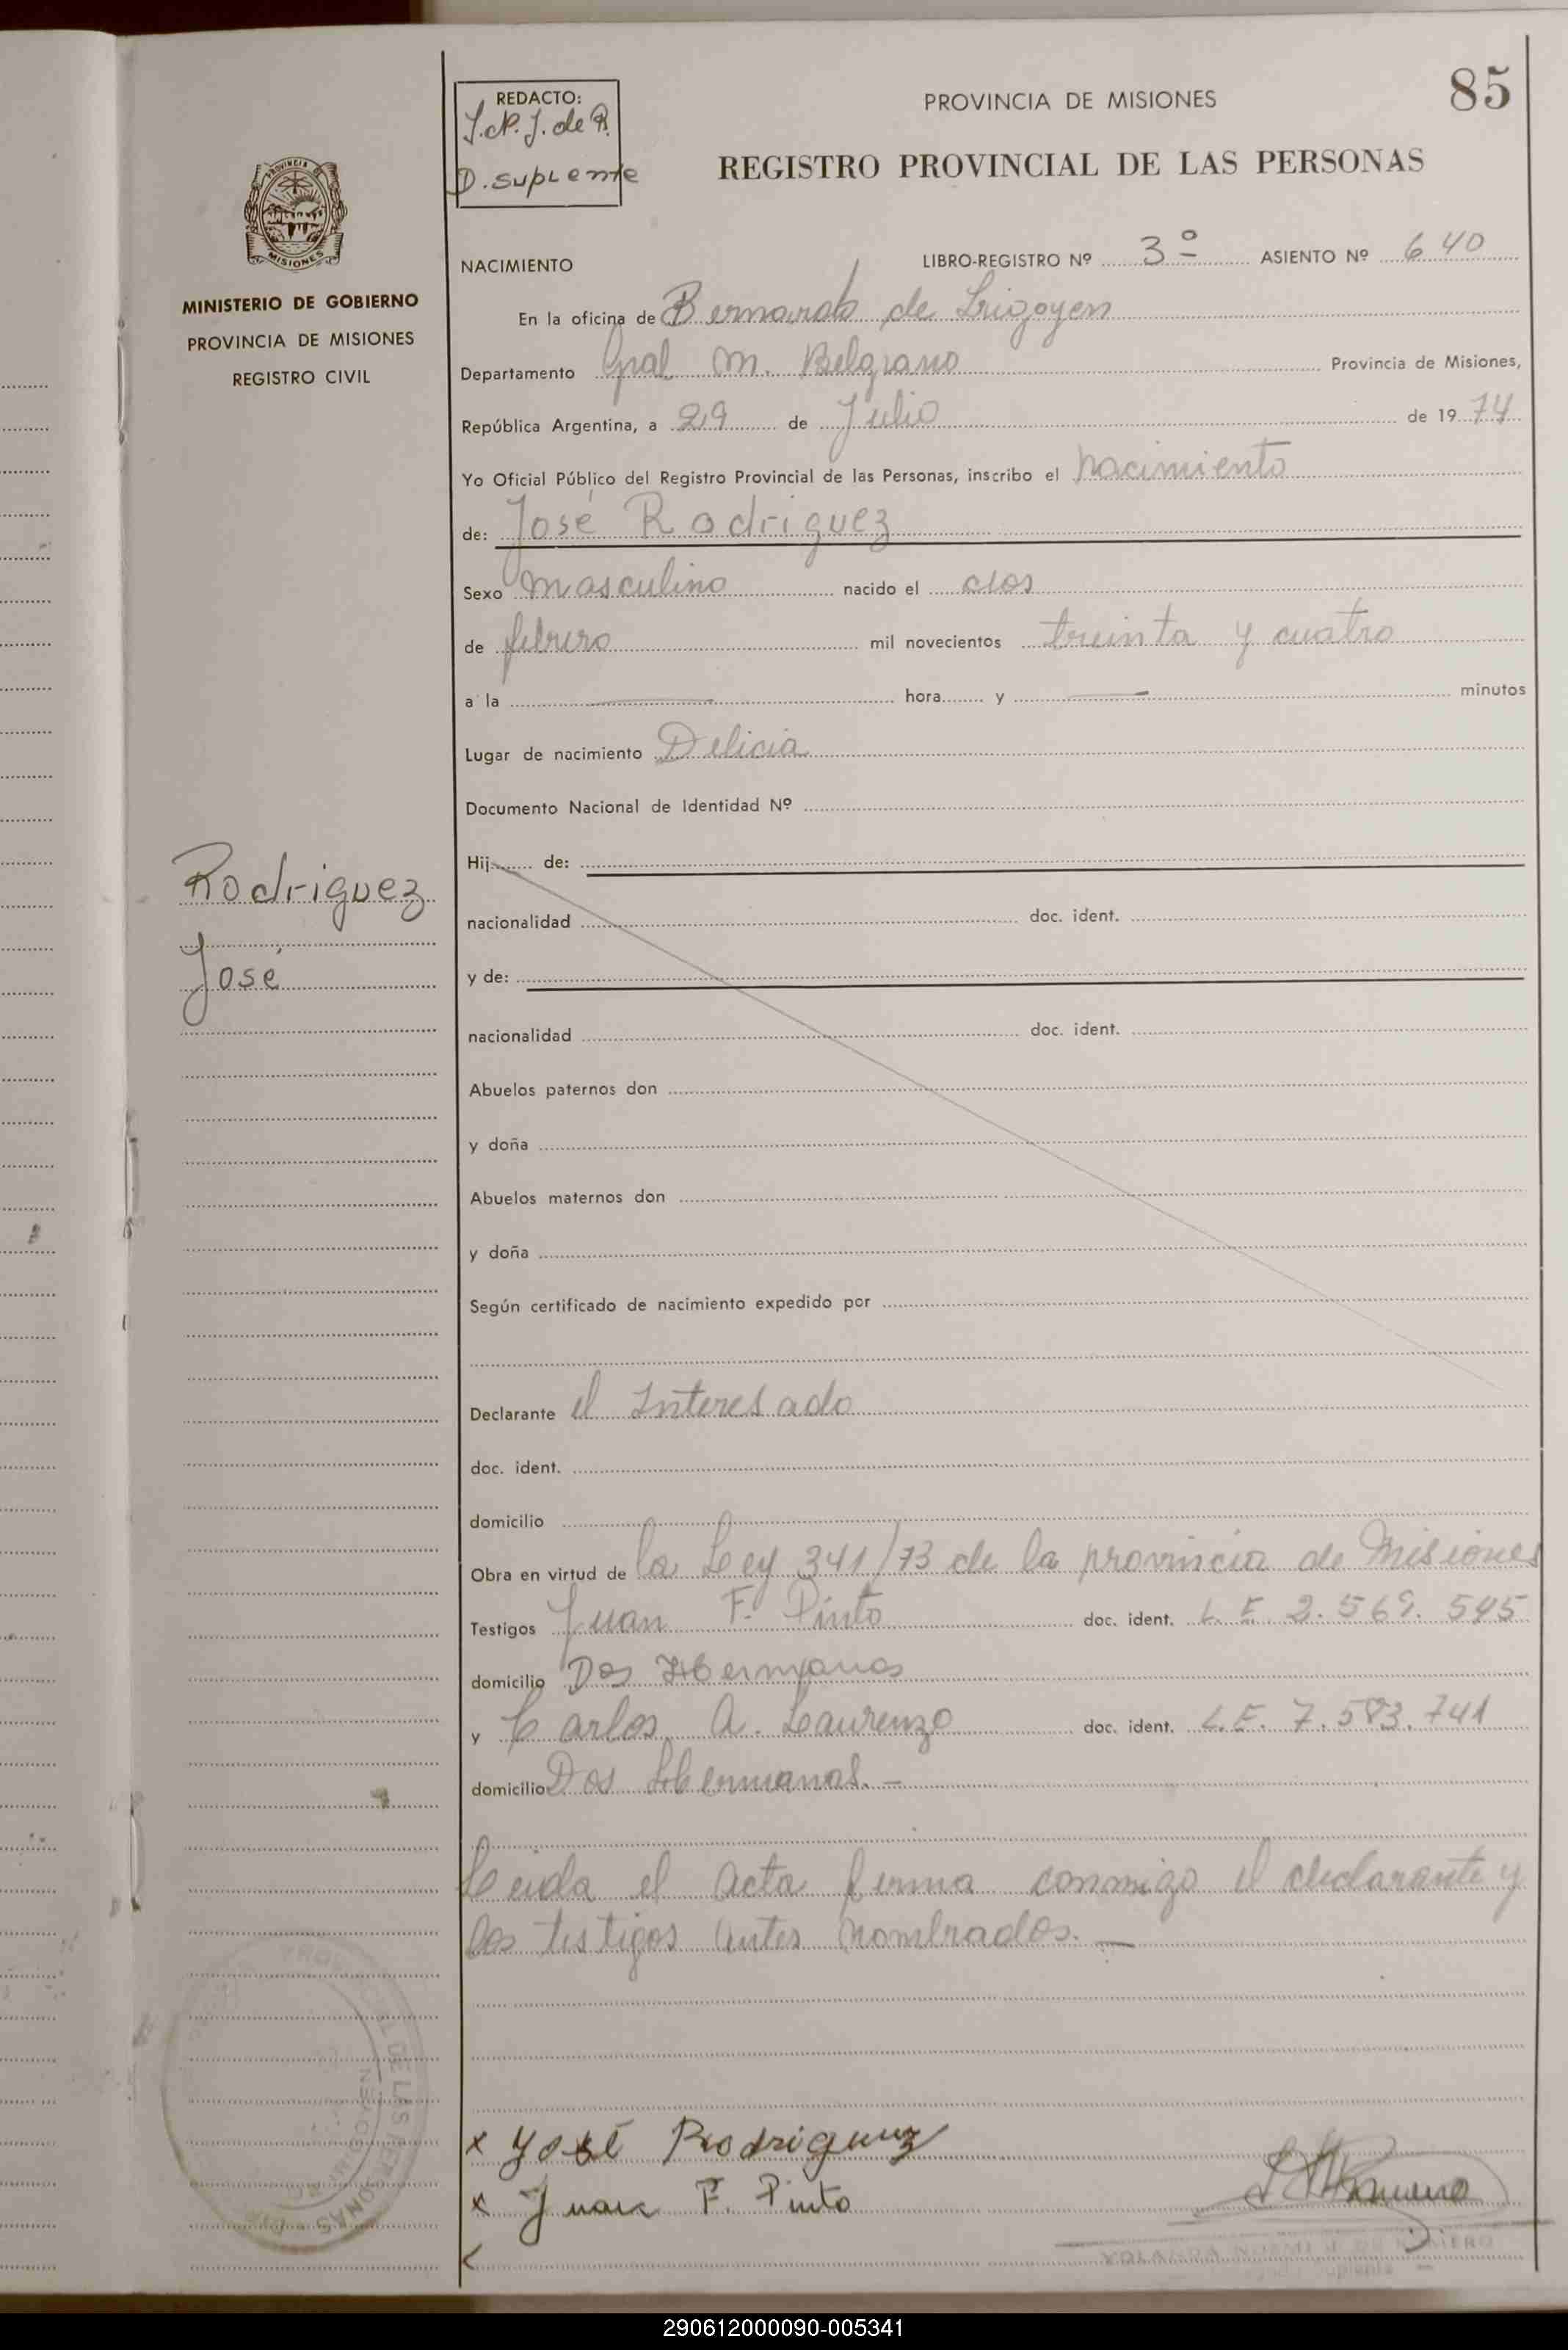 85
REDACTO:
D. suplente
PROVINCIA DE MISIONES
REGISTRO PROVINCIAL DE LAS PERSONAS
PROVINCIA
MISIONES
MINISTERIO DE GOBIERNO
PROVINCIA DE MISIONES
REGISTRO CIVIL
NACIMIENTO
LIBRO-REGISTRO Nº 3º ASIENTO Nº 640
En la oficina de Bernardo de Irigoyen
Departamento Gral M. Belgrano Provincia de Misiones,
República Argentina, a 29 de Julio de 1974
Yo Oficial Público del Registro Provincial de las Personas, inscribo el nacimiento
de: José Rodriguez
Sexo masculino nacido el dos
de febrero mil novecientos treinta y cuatro
a la hora y minutos
Lugar de nacimiento Delicia
Documento Nacional de Identidad Nº
Hij de:
nacionalidad doc. ident.
y de:
nacionalidad doc. ident.
Abuelos paternos don
y doña
Abuelos maternos don
y doña
Según certificado de nacimiento expedido por
Declarante el Interesado
doc. ident.
domicilio
Obra en virtud de la Ley 341/73 de la provincia de Misiones
Testigos Juan F. Pinto doc. ident. L.E. 2.569.545
domicilio Dos Hermanas
y Carlos A. Laurenzo doc. ident. L.E. 7.583.741
domicilio Dos Hermanas. -
Leida el acta firma conmigo el declarante y
los testigos antes nombrados. —
Rodriguez
José
x José Rodriguez
x Juan F. Pinto
290612000090-005341